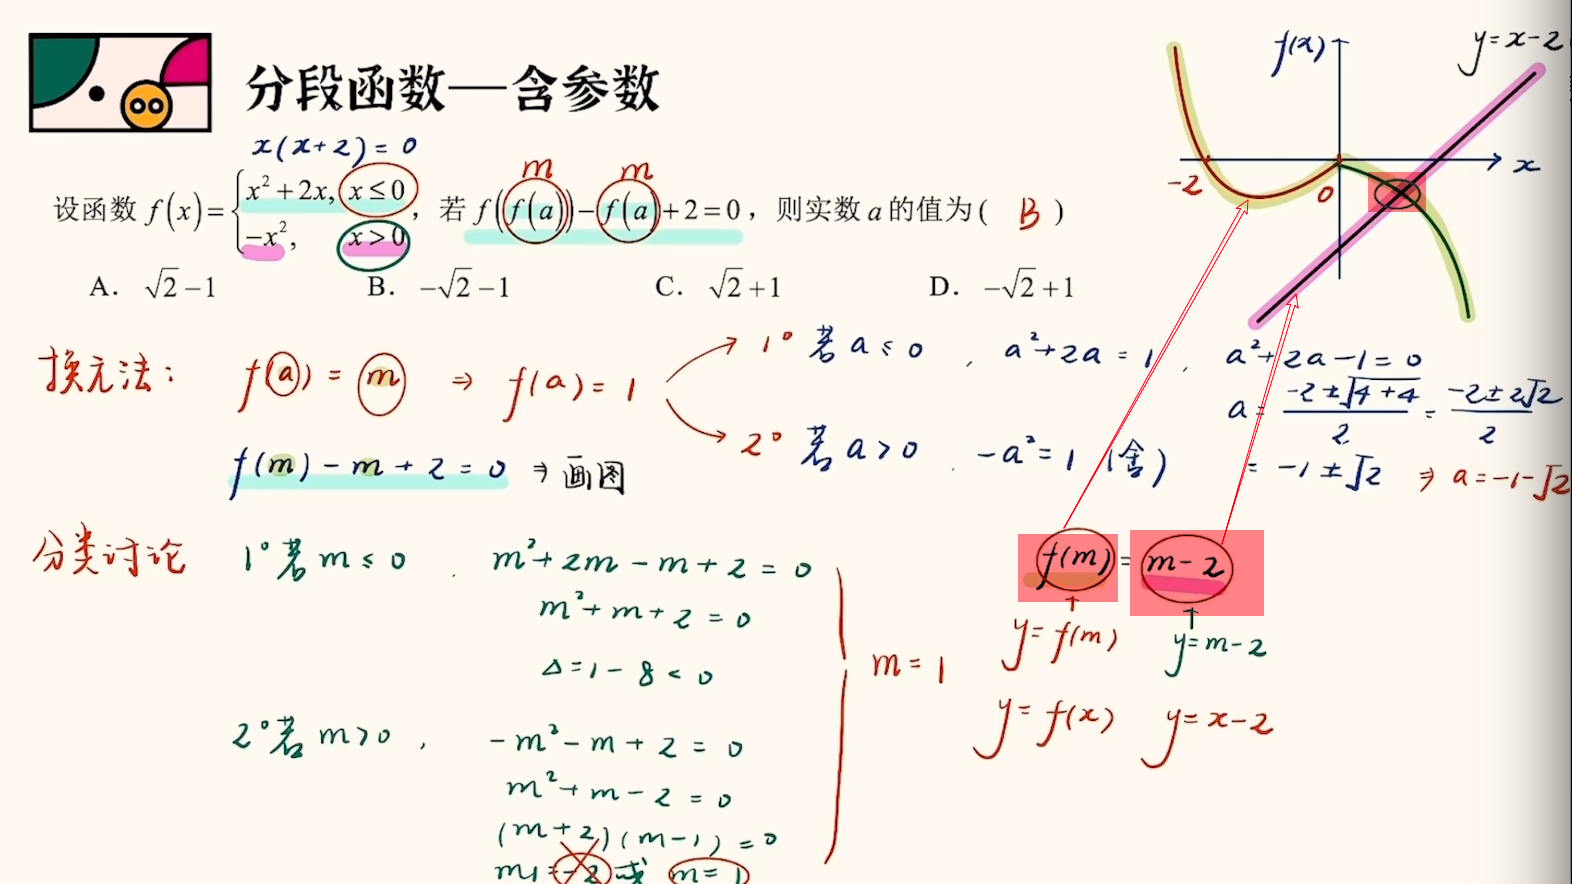 分段函数—含参数
x(x+2)=0
m m
设函数 f(x)={x²+2x, x≤0
-x², x>0
，若 f(f(a))-f(a)+2=0，则实数 a 的值为( B )
A. √2-1 B. -√2-1 C. √2+1 D. -√2+1
f(x) y=x-2
-2 0 x
换元法: f(a)=m ⇒ f(a)=1
1° 若 a≤0, a²+2a=1, a²+2a-1=0
a=(-2±√(4+4))/2=(-2±2√2)/2
=-1±√2 ⇒ a=-1-√2
2° 若 a>0, -a²=1 (舍)
f(m)-m+2=0 ⇒ 画图
分类讨论 1° 若 m≤0, m²+2m-m+2=0
m²+m+2=0
Δ=1-8<0
2° 若 m>0, -m²-m+2=0
m²+m-2=0
(m+2)(m-1)=0
m1=-2 或 m=1
m=1
f(m)=m-2
↑ ↑
y=f(m) y=m-2
y=f(x) y=x-2